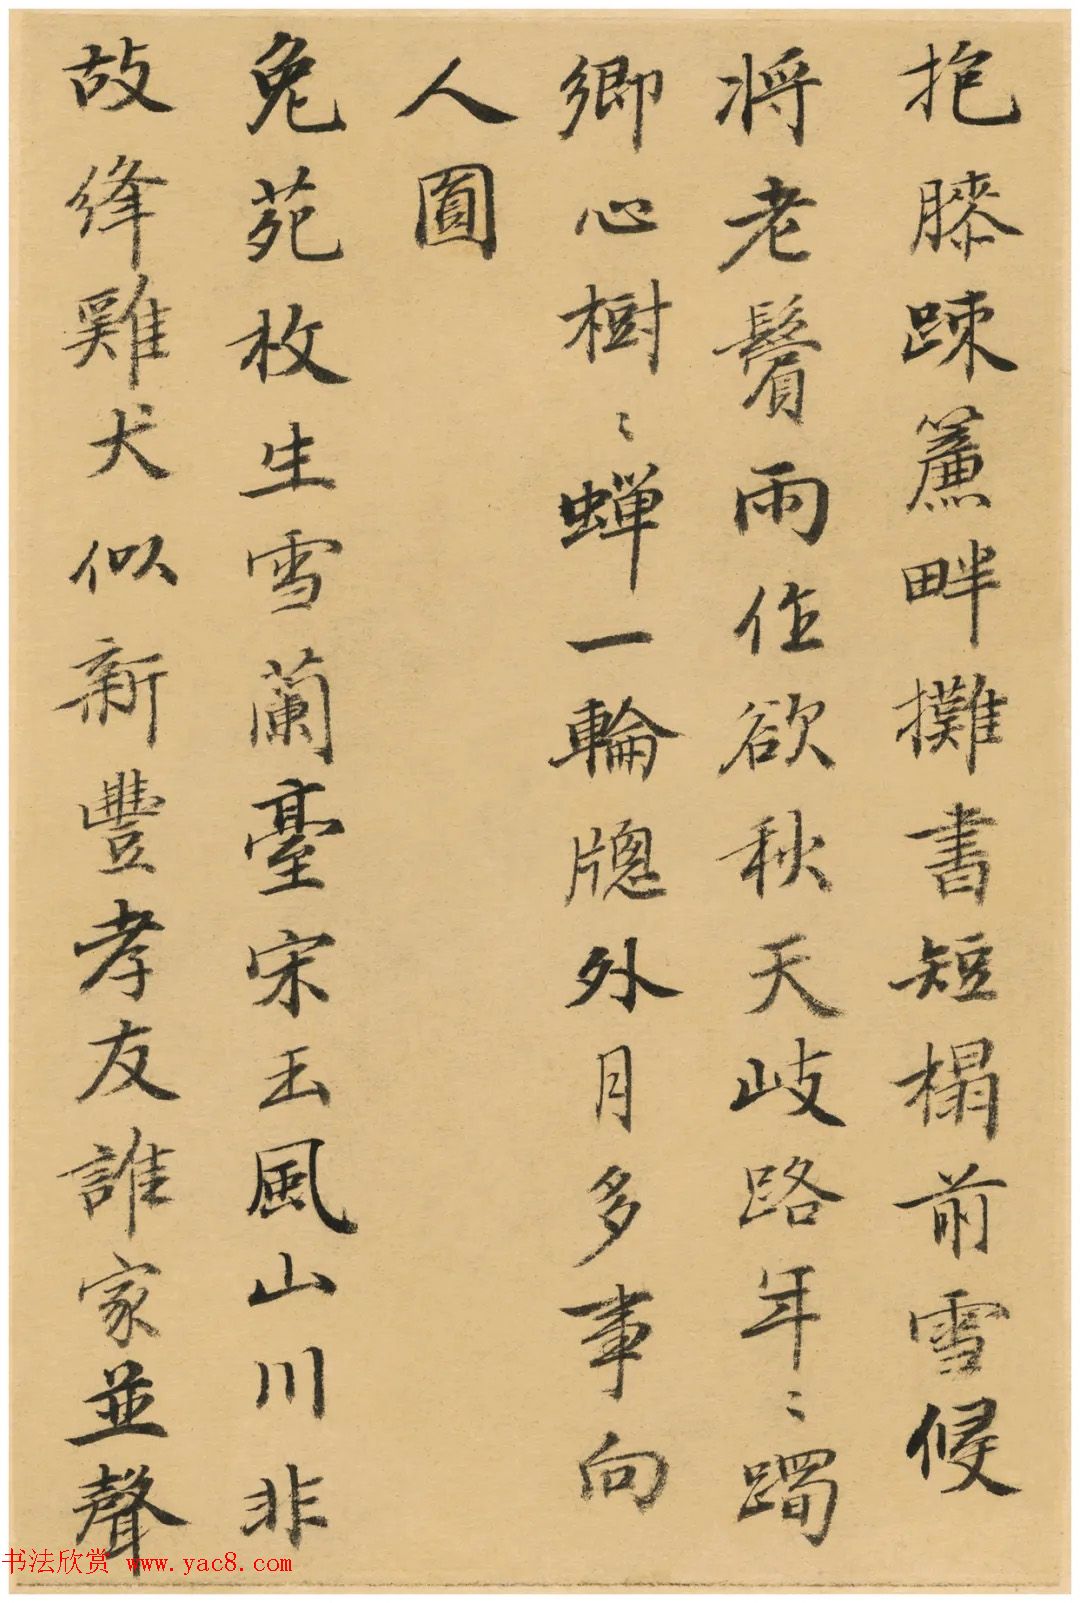 抱膝疎簾畔攤書短榻前雪侵
将老鬢雨作欲秋天岐路年〻躅
鄉心樹〻蟬一輪牕外月多事向
人圓
兔苑枚生雪蘭臺宋玉風山川非
故絳雞犬似新豐孝友誰家並聲
书法欣赏 www.yac8.com